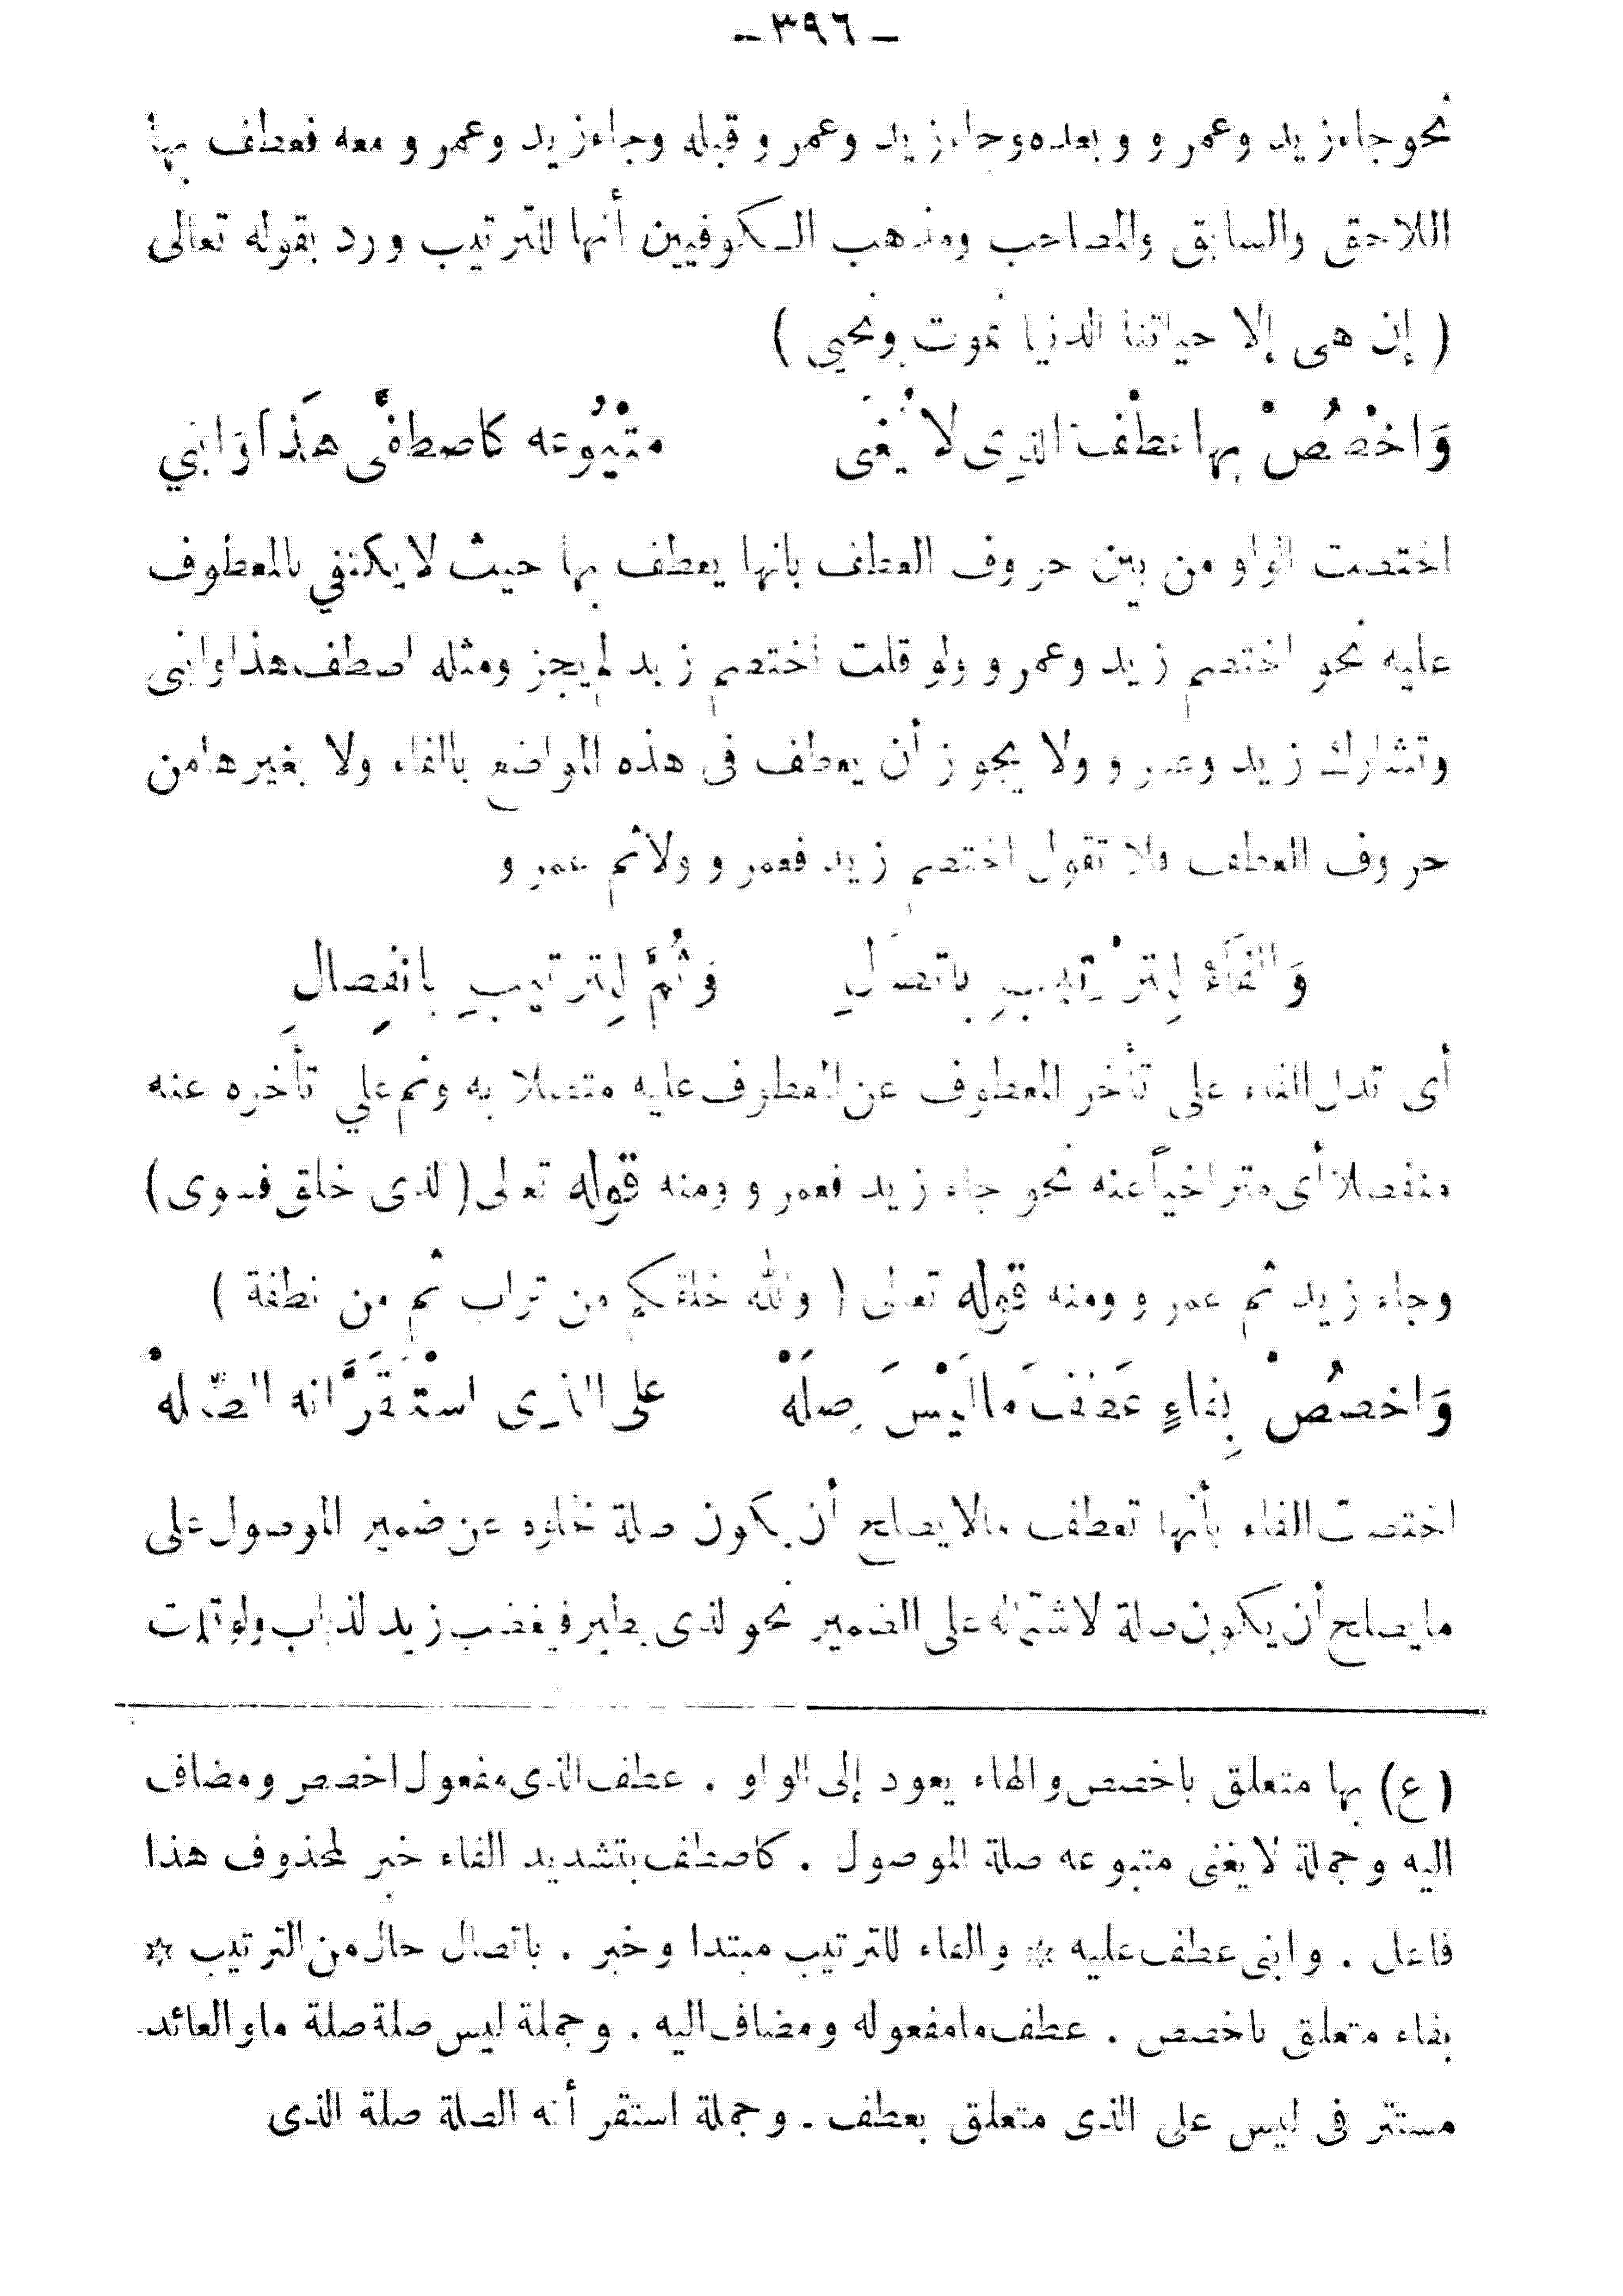 ـ ٣٩٦ ـ
نحو جاء زيد وعمرو وبعده وجاء زيد وعمرو قبله وجاء زيد وعمرو معه فعطف بها
اللاحق والسابق والمصاحب ومذهب الكوفيين أنها للترتيب ورد بقوله تعالى
( إن هى إلا حياتنا الدنيا نموت ونحيى )
وَاخْصُصْ بها عطْفَ الذِى لا يُغنى متْبُوعه كاصطفَّ هَذا وَابنِي
اختصت الواو من بين حروف العطف بانها يعطف بها حيث لا يكتفي بالمعطوف
عليه نحو اختصم زيد وعمرو ولو قلت اختصم زيد لم يجز ومثله اصطف هذا وابنى
وتشارك زيد وعمرو ولا يجوز أن يعطف فى هذه المواضع بالفاء ولا بغيرها من
حروف العطف فلا تقول اختصم زيد فعمرو ولا ثم عمرو
وَالْفَاءُ لِلتَّرْتِيبِ باتصالِ وَثُمَّ لِلتَرتيبِ بانفِصالِ
أى تدل الفاء على تأخر المعطوف عن المعطوف عليه متصلا به وثم علي تأخره عنه
منفصلا أى متراخياً عنه نحو جاء زيد فعمرو ومنه قوله تعالى ( الذى خلق فسوى )
وجاء زيد ثم عمرو ومنه قوله تعالى ( والله خلقكم من تراب ثم من نطفة )
وَاخصُصْ بِفاءٍ عَطفَ ما لَيْسَ صِلَهْ على الذِى اسْتَقَرَّ انه الصِّلهْ
اختصت الفاء بأنها تعطف مالا يصلح أن يكون صلة لخلوه عن ضمير الموصول على
ما يصلح أن يكون صلة لاشتماله على الضمير نحو الذى يطير فيغضب زيد الذباب ولو قلت
(ع) بها متعلق باخصص والهاء يعود إلى الواو . عطف الذى مفعول اخصص ومضاف
اليه وجملة لا يغنى متبوعه صلة الموصول . كاصطف بتشديد الفاء خبر لمحذوف هذا
فاعل . وابنى عطف عليه ☆ والفاء للترتيب مبتدا وخبر . باتصال حال من الترتيب ☆
بفاء متعلق باخصص . عطف ما مفعوله ومضاف اليه . وجملة ليس صلة صلة ما والعائد
مستتر فى ليس على الذى متعلق بعطف . وجملة استقر أنه الصلة صلة الذى